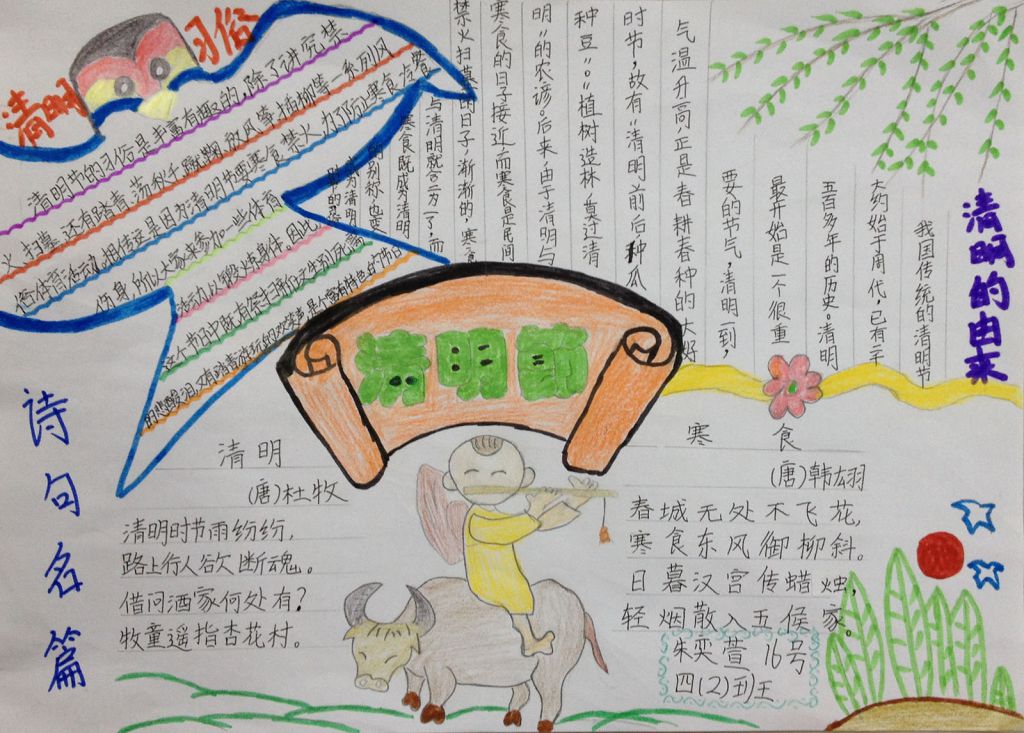 清明习俗
清明节的习俗是丰富有趣的,除了讲究禁
火、扫墓,还有踏青、荡秋千、蹴鞠、放风筝、插柳等一系列风
俗体育活动。相传这是因为清明节要寒食禁火,为了防止寒食冷餐
伤身,所以大家来参加一些体育
活动,以锻炼身体。因此,
这个节日中既有祭扫新坟生别死离
的悲酸泪,又有踏青游玩的欢笑声,是个富有特色的节日
清明的由来
我国传统的清明节
大约始于周代,已有二千
五百多年的历史。清明
最开始是一个很重
要的节气,清明一到,
气温升高,正是春耕春种的大好
时节,故有“清明前后,种瓜
种豆”。“植树造林,莫过清
明”的农谚。后来,由于清明与
寒食的日子接近,而寒食是民间
禁火扫墓的日子,渐渐的,寒食
与清明就合二为一了,而
寒食既成为清明
的别称,也变
成为清明
清明節
诗句名篇
清明
(唐)杜牧
清明时节雨纷纷,
路上行人欲断魂。
借问酒家何处有?
牧童遥指杏花村。
寒食
(唐)韩翃
春城无处不飞花,
寒食东风御柳斜。
日暮汉宫传蜡烛,
轻烟散入五侯家。
朱奕萱 16号
四(2)班